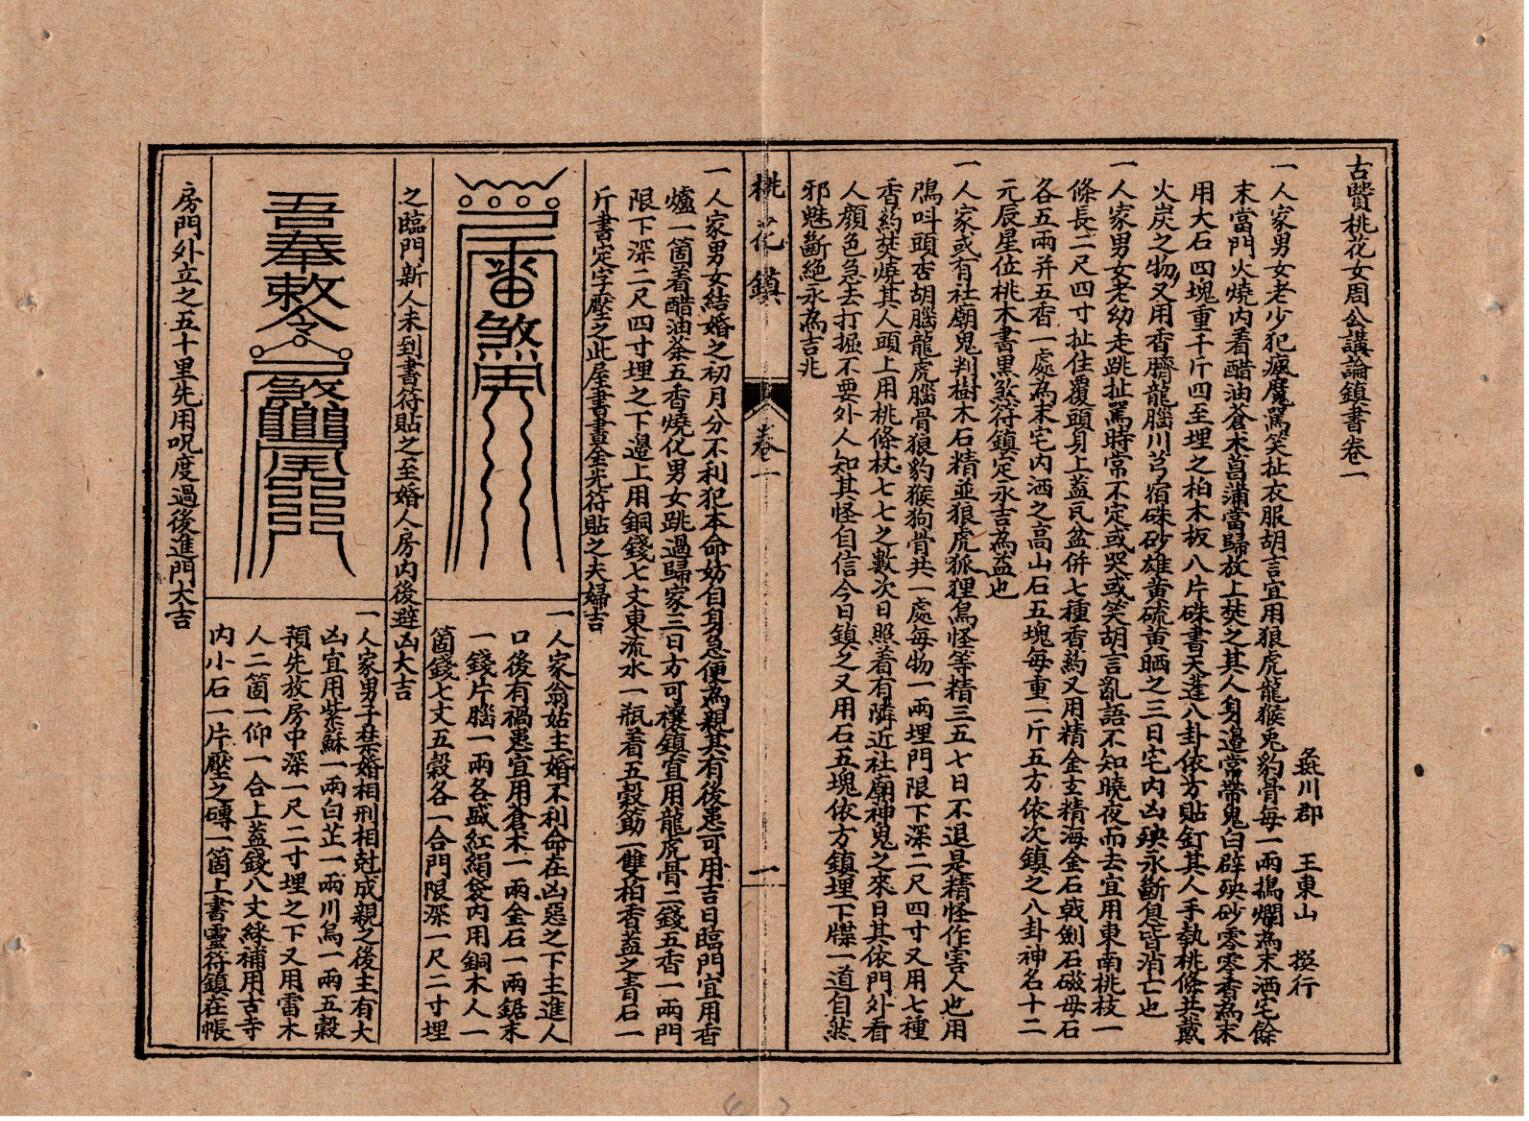 古賢桃花女周公講論鎮書卷一
彝川郡 王東山 撰行
一人家男女老少犯瘋魔罵笑扯衣服胡言宜用狼虎龍猴兎豹骨每一兩搗爛為末洒宅餘
末當門火燒內看醋油蒼木菖蒲當歸放上焚之其人身邊常帶鬼臼辟殃砂零零香為末
用大石四塊重千斤四至埋之柏木板八片硃書天蓬八卦依方貼釘其人手執桃條共蕆
火炭之物又用香臍龍腦川芎宿硃砂雄黃硫黃晒之三日宅內凶殃永斷怠皆消亡也
一人家男女老幼走跳扯罵時常不定或哭或笑胡言亂語不知曉夜而去宜用東南桃枝一
條長二尺四寸扯住覆頭身上蓋瓦盆併七種香葯又用精金玄精海金石戟劍石磁母石
各五兩并五香一處為末宅內洒之高山石五塊每重一斤五方依次鎮之八卦神名十二
元辰星位桃木書黑煞符鎮定永吉為益也
一人家或有社廟鬼判樹木石精並狼虎狐狸鳥怪等精三五七日不退是精怪作害人也用
鴟呌頭杏胡腦龍虎腦骨狼豹猴狗骨共一處每物一兩埋門限下深二尺四寸又用七種
香葯焚燒其人頭上用桃條杖七七之數次日照着有隣近社廟神鬼之來日其依門外看
人顏色急去打掘不要外人知其怪自信今日鎮之又用石五塊依方鎮埋下牒一道自然
邪魅斷絕永為吉兆
桃花鎮 卷一 一
一人家男女結婚之初月分不利犯本命妨自身急便為親其有後患可用吉日臨門宜用香
爐一箇着醋油茶五香燒化男女跳過歸家三日方可禳鎮宜用龍虎骨二錢五香一兩門
限下深二尺四寸埋之下邊上用銅錢七文東流水一瓶着五穀筯一雙柏香蓋之青石一
斤書定字壓之此屋書畫金光符貼之夫婦吉
一人家翁姑主婚不利命在凶惡之下主進人
口後有禍患宜用倉木一兩金石一兩鋸末
一錢片腦一兩各盛紅絹袋內用銅木人一
箇錢七丈五穀各一合門限深一尺二寸埋
之臨門新人未到書符貼之至婚人房內後避凶大吉
吾奉敕令
一人家男子𠦑婚相刑相尅成親之後主有大
凶宜用紫蘇一兩白芷一兩川烏一兩五穀
預先放房中深一尺二寸埋之下又用雷木
人二箇一仰一合上蓋錢八丈綵補用古寺
內小石一片壓之磚一箇上書靈符鎮在帳
房門外立之五十里先用呪度過後進門大吉